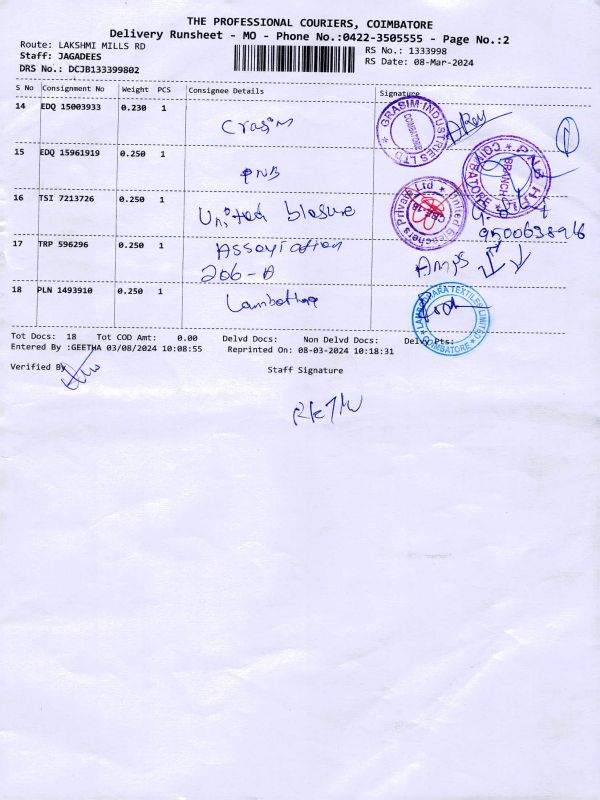 THE PROFESSIONAL COURIERS, COIMBATORE
Delivery Runsheet - MO - Phone No.:0422-3505555 - Page No.:2
Route: LAKSHMI MILLS RD
RS No.: 1333998
Staff: JAGADEES
RS Date: 08-Mar-2024
DRS No.: DCJB133399802
S No Consignment No Weight PCS Consignee Details Signature
14 EDQ 15003933 0.230 1
GRASIM INDUSTRIES LTD
COIMBATORE
15 EDQ 15961919 0.250 1 PNB
PNB HFL
BRANCH
COIMBATORE
16 TSI 7213726 0.250 1 United
United Bleachers Private Ltd
9500638916
17 TRP 596296 0.250 1 Association
206-A
18 PLN 1493910 0.250 1
TEXTILES LIMITED
COIMBATORE
Tot Docs: 18 Tot COD Amt: 0.00 Delvd Docs: Non Delvd Docs: Delvd Pts:
Entered By :GEETHA 03/08/2024 10:08:55 Reprinted On: 08-03-2024 10:18:31
Verified By
Staff Signature